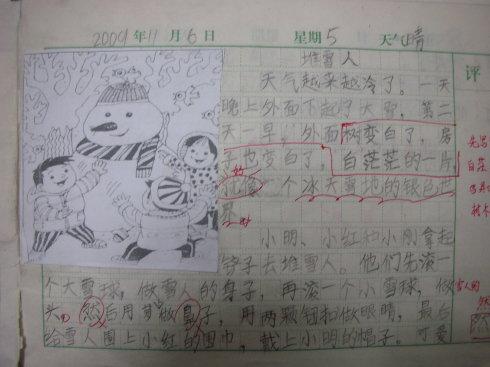 2009年11月6日 星期5 天气晴
评
堆雪人
天气越来越冷了。一天
晚上外面下起了大雪，第二
天一早，外面树变白了，房
子也变白了，白茫茫的一片
好像一个冰天雪地的银色世
界
小明、小红和小刚拿起
铲子去堆雪人。他们先滚一
个大雪球，做雪人的身子，再滚一个小雪球，做
头，然后用 做鼻子，用两颗钮扣做眼睛，最后
给雪人围上小红的围巾，戴上小明的帽子。可爱
先写
白茫
树木
雪人的
然